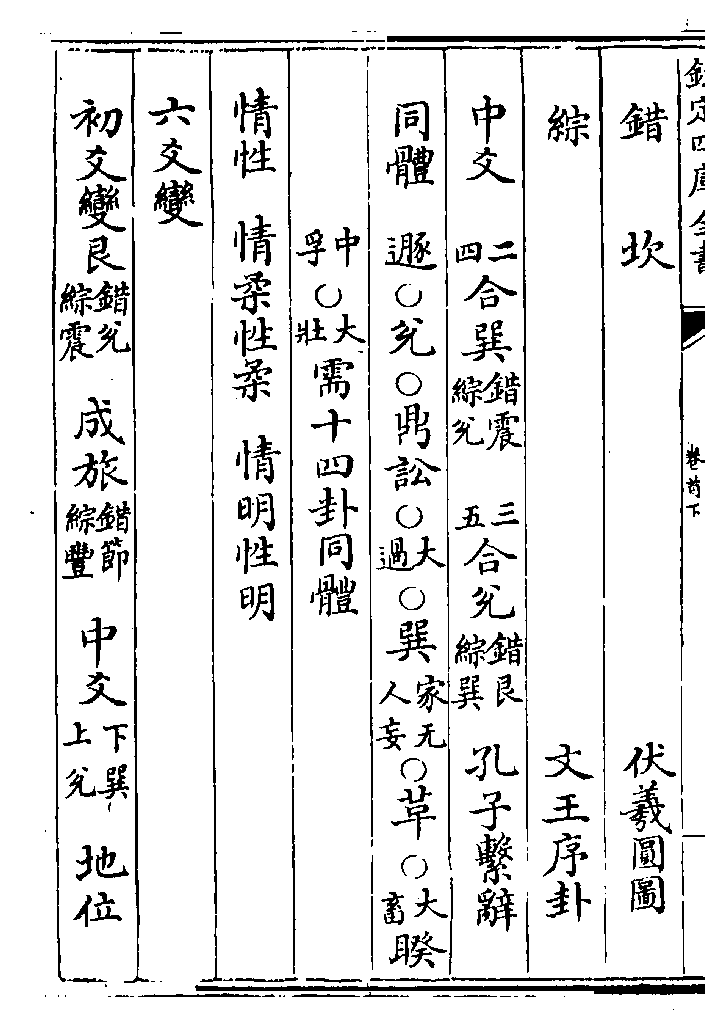 欽定四庫全書 卷首下
錯 坎 伏羲圓圖
綜 文王序卦
中爻 二四合巽錯震綜兌 三五合兌錯艮綜巽 孔子繫辭
同體 遯○兌○鼎訟○大過○巽家人无妄○革○大畜睽
中孚○大壯需十四卦同體
情性 情柔性柔 情明性明
六爻變
初爻變艮錯兌綜震 成旅錯節綜豐 中爻下巽上兌 地位